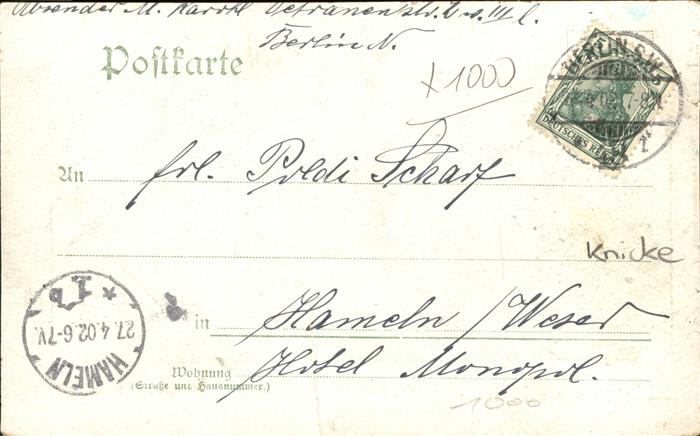 Absender M. Veteranenstr. III l.
Berlin N.
Postkarte
x 1000
BERLIN S.W.
DEUTSCHES REICH
An Frl. Poldi Scharf
Knicke
in Hameln / Weser
Wohnung Hotel Monopol.
(Straße und Hausnummer.)
1000
HAMELN
27.4.02.6-7V.
* 1b